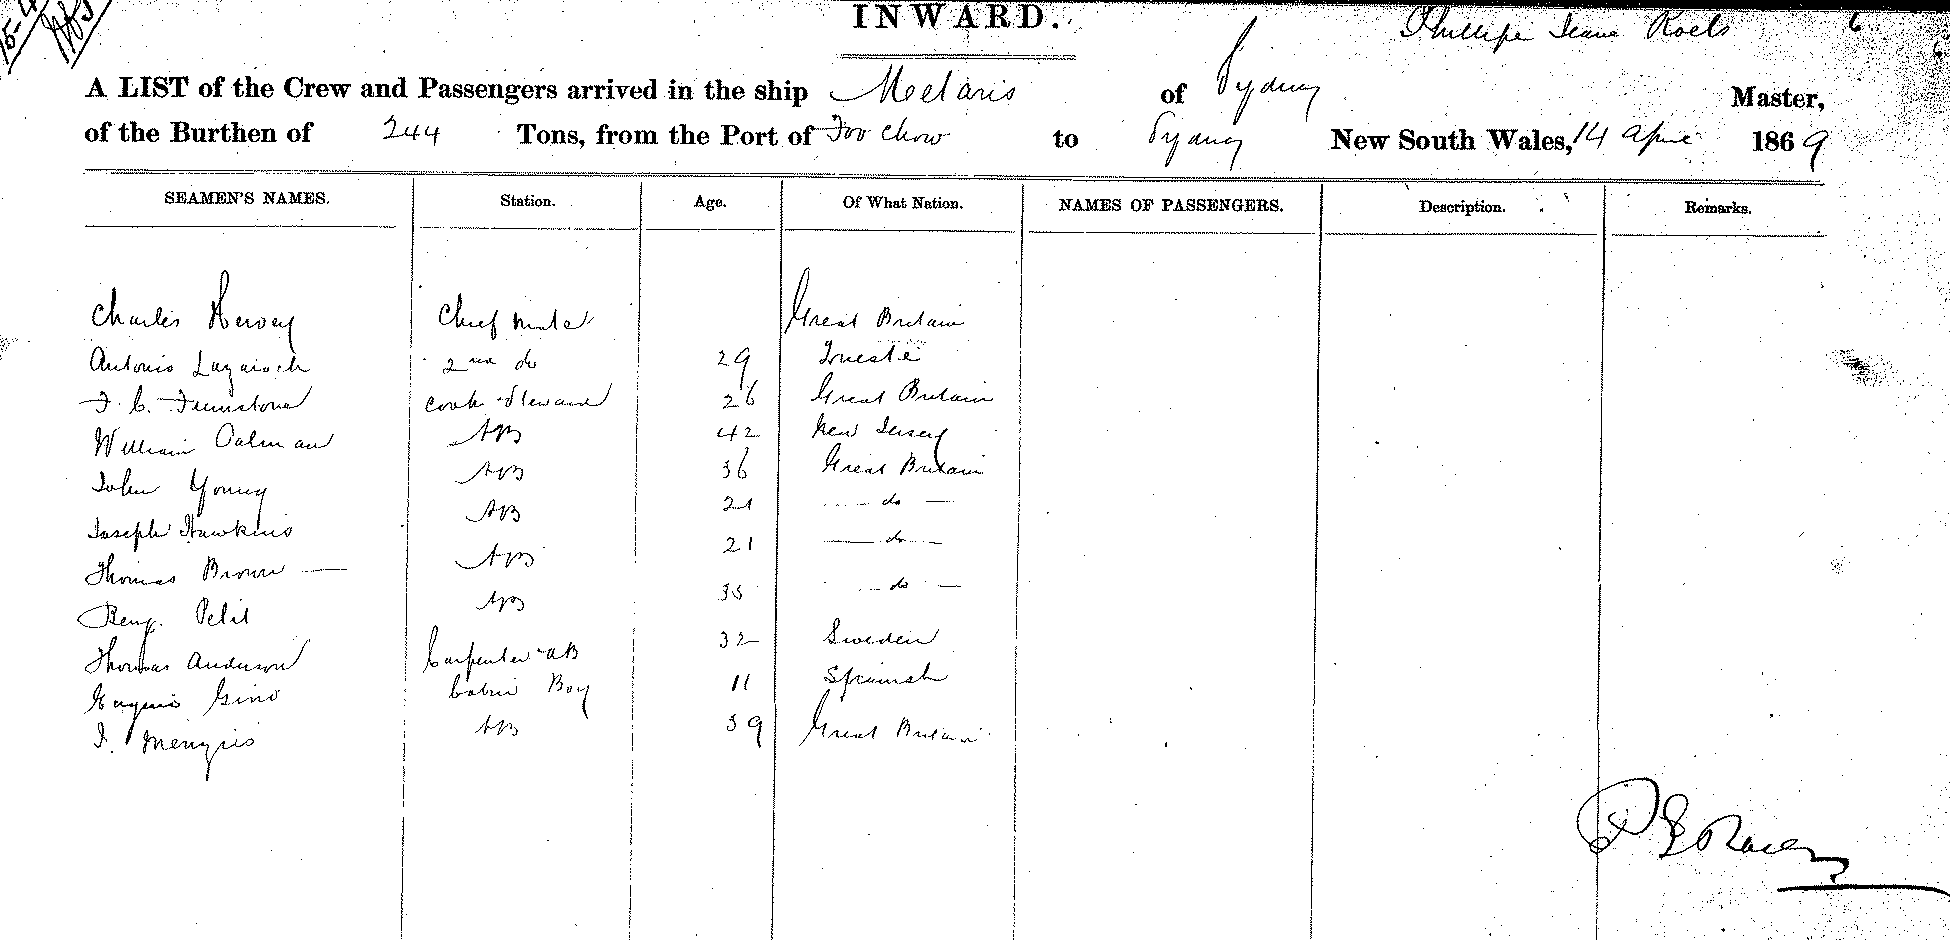 INWARD.
A LIST of the Crew and Passengers arrived in the ship Melaris of Sydney Master,
of the Burthen of 244 Tons, from the Port of Foo Chow to Sydney New South Wales, 14 April 1869
SEAMEN'S NAMES. Station. Age. Of What Nation. NAMES OF PASSENGERS. Description. Remarks.
Charles Hervey Chief Mate Great Britain
Antonio 2nd do 29 Trieste
F. C. Cook & Steward 26 Great Britain
William Oatman AB 42 New Jersey
John Young AB 36 Great Britain
Joseph Hawkins AB 21 do
Thomas Brown AB 21 do
Benj. Petit AB 35 do
Thomas Anderson Carpenter AB 32 Sweden
Gino Cabin Boy 11 Spanish
AB 39 Great Britain